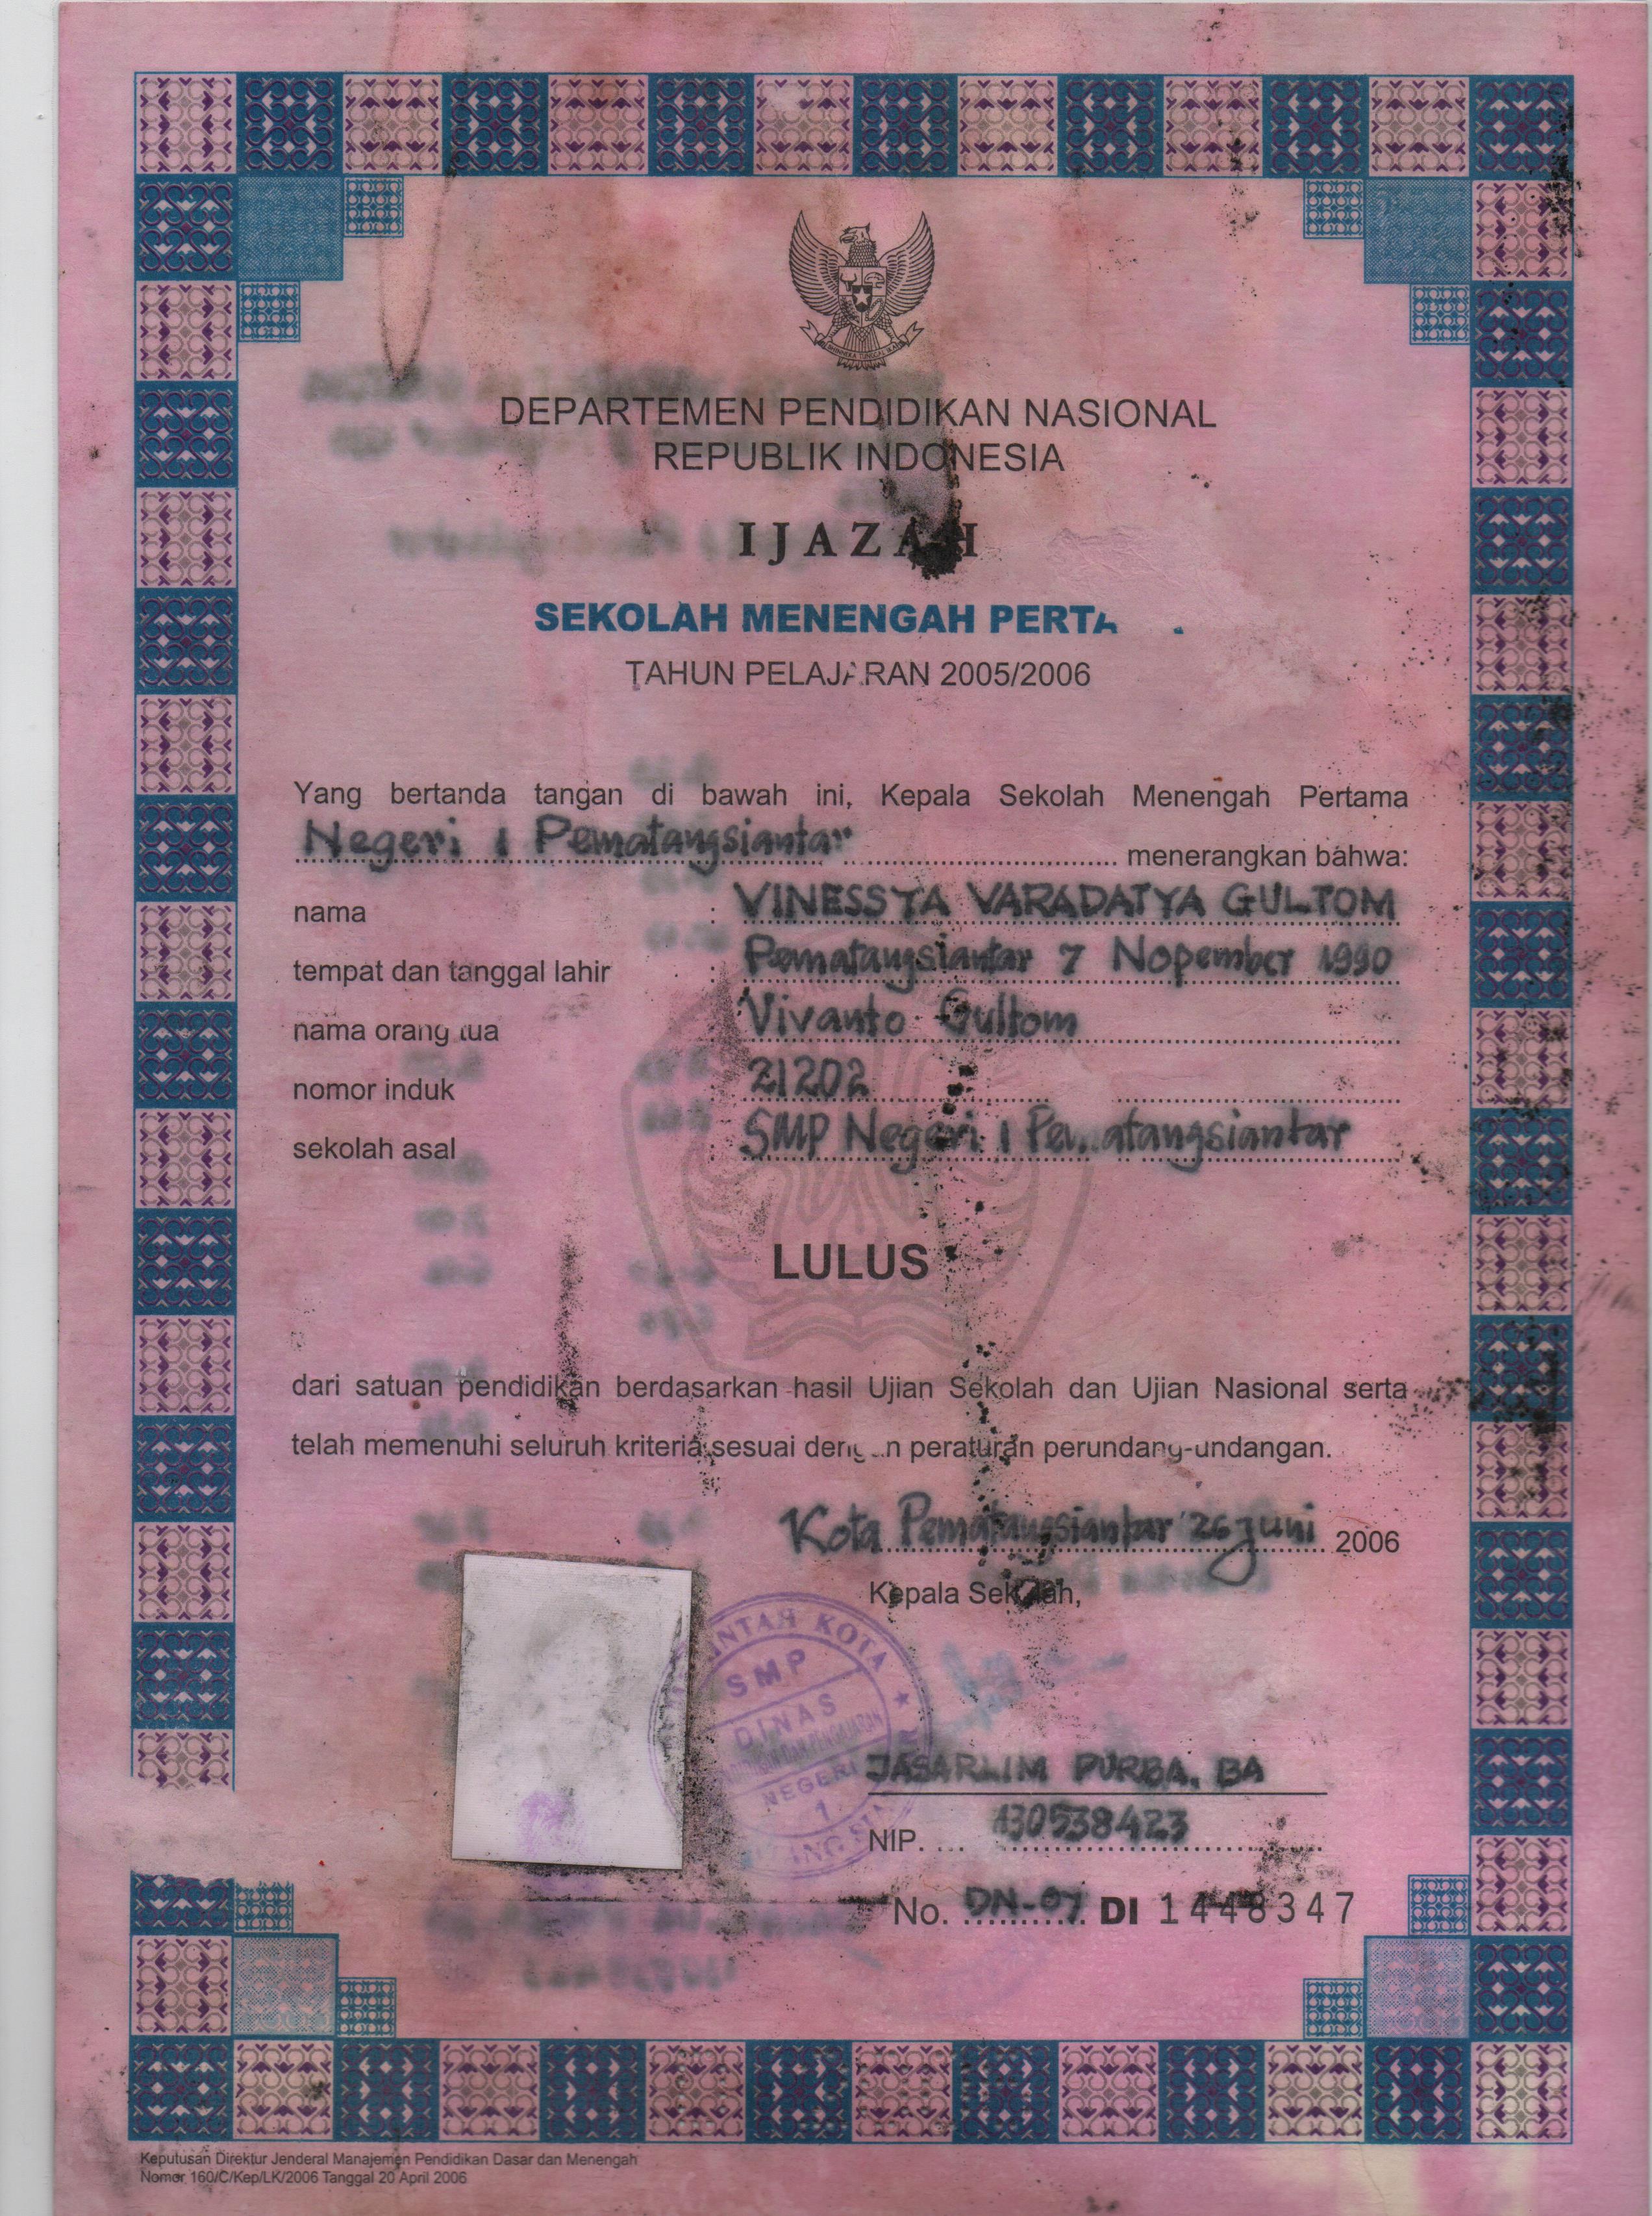 DEPARTEMEN PENDIDIKAN NASIONAL
REPUBLIK INDONESIA
IJAZAH
SEKOLAH MENENGAH PERTA
TAHUN PELAJARAN 2005/2006
Yang bertanda tangan di bawah ini, Kepala Sekolah Menengah Pertama
Negeri 1 Pematangsiantar menerangkan bahwa:
nama : VINESSYA VARADATYA GULTOM
tempat dan tanggal lahir : Pematangsiantar 7 Nopember 1990
nama orang tua : Vivanto Gultom
nomor induk : 21202
sekolah asal : SMP Negeri 1 Pematangsiantar
LULUS
dari satuan pendidikan berdasarkan hasil Ujian Sekolah dan Ujian Nasional serta
telah memenuhi seluruh kriteria sesuai dengan peraturan perundang-undangan.
Kota Pematangsiantar 26 Juni 2006
Kepala Sekolah,
KOTA
SMP
DINAS
NEGERI
1
JASARLIM PURBA, BA
NIP. 130538423
No. DN-07 DI 1448347
Keputusan Direktur Jenderal Manajemen Pendidikan Dasar dan Menengah
Nomor 160/C/Kep/LK/2006 Tanggal 20 April 2006